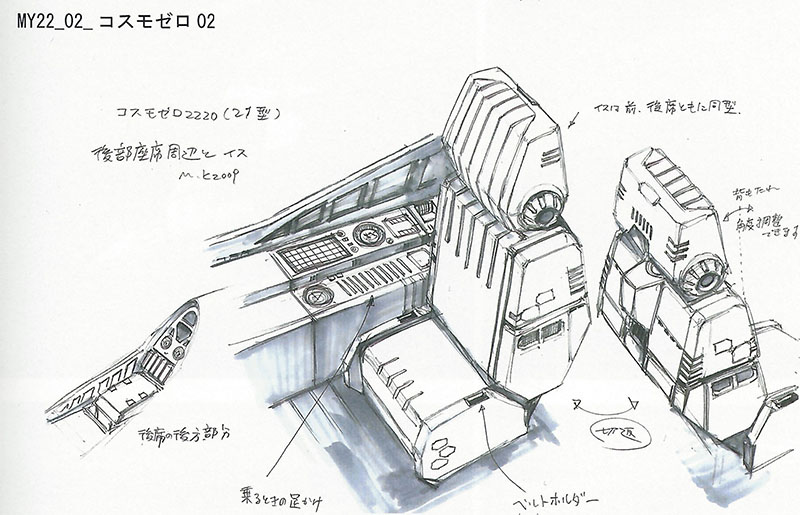 MY22_02_コスモゼロ02
コスモゼロ2220(21型)
後部座席周辺と イス
M.K2009
イスは前、後席ともに同型.
背もたれ
角度調整
できます
後席の後方部分
乗るときの足かけ
ベルトホルダー
切返